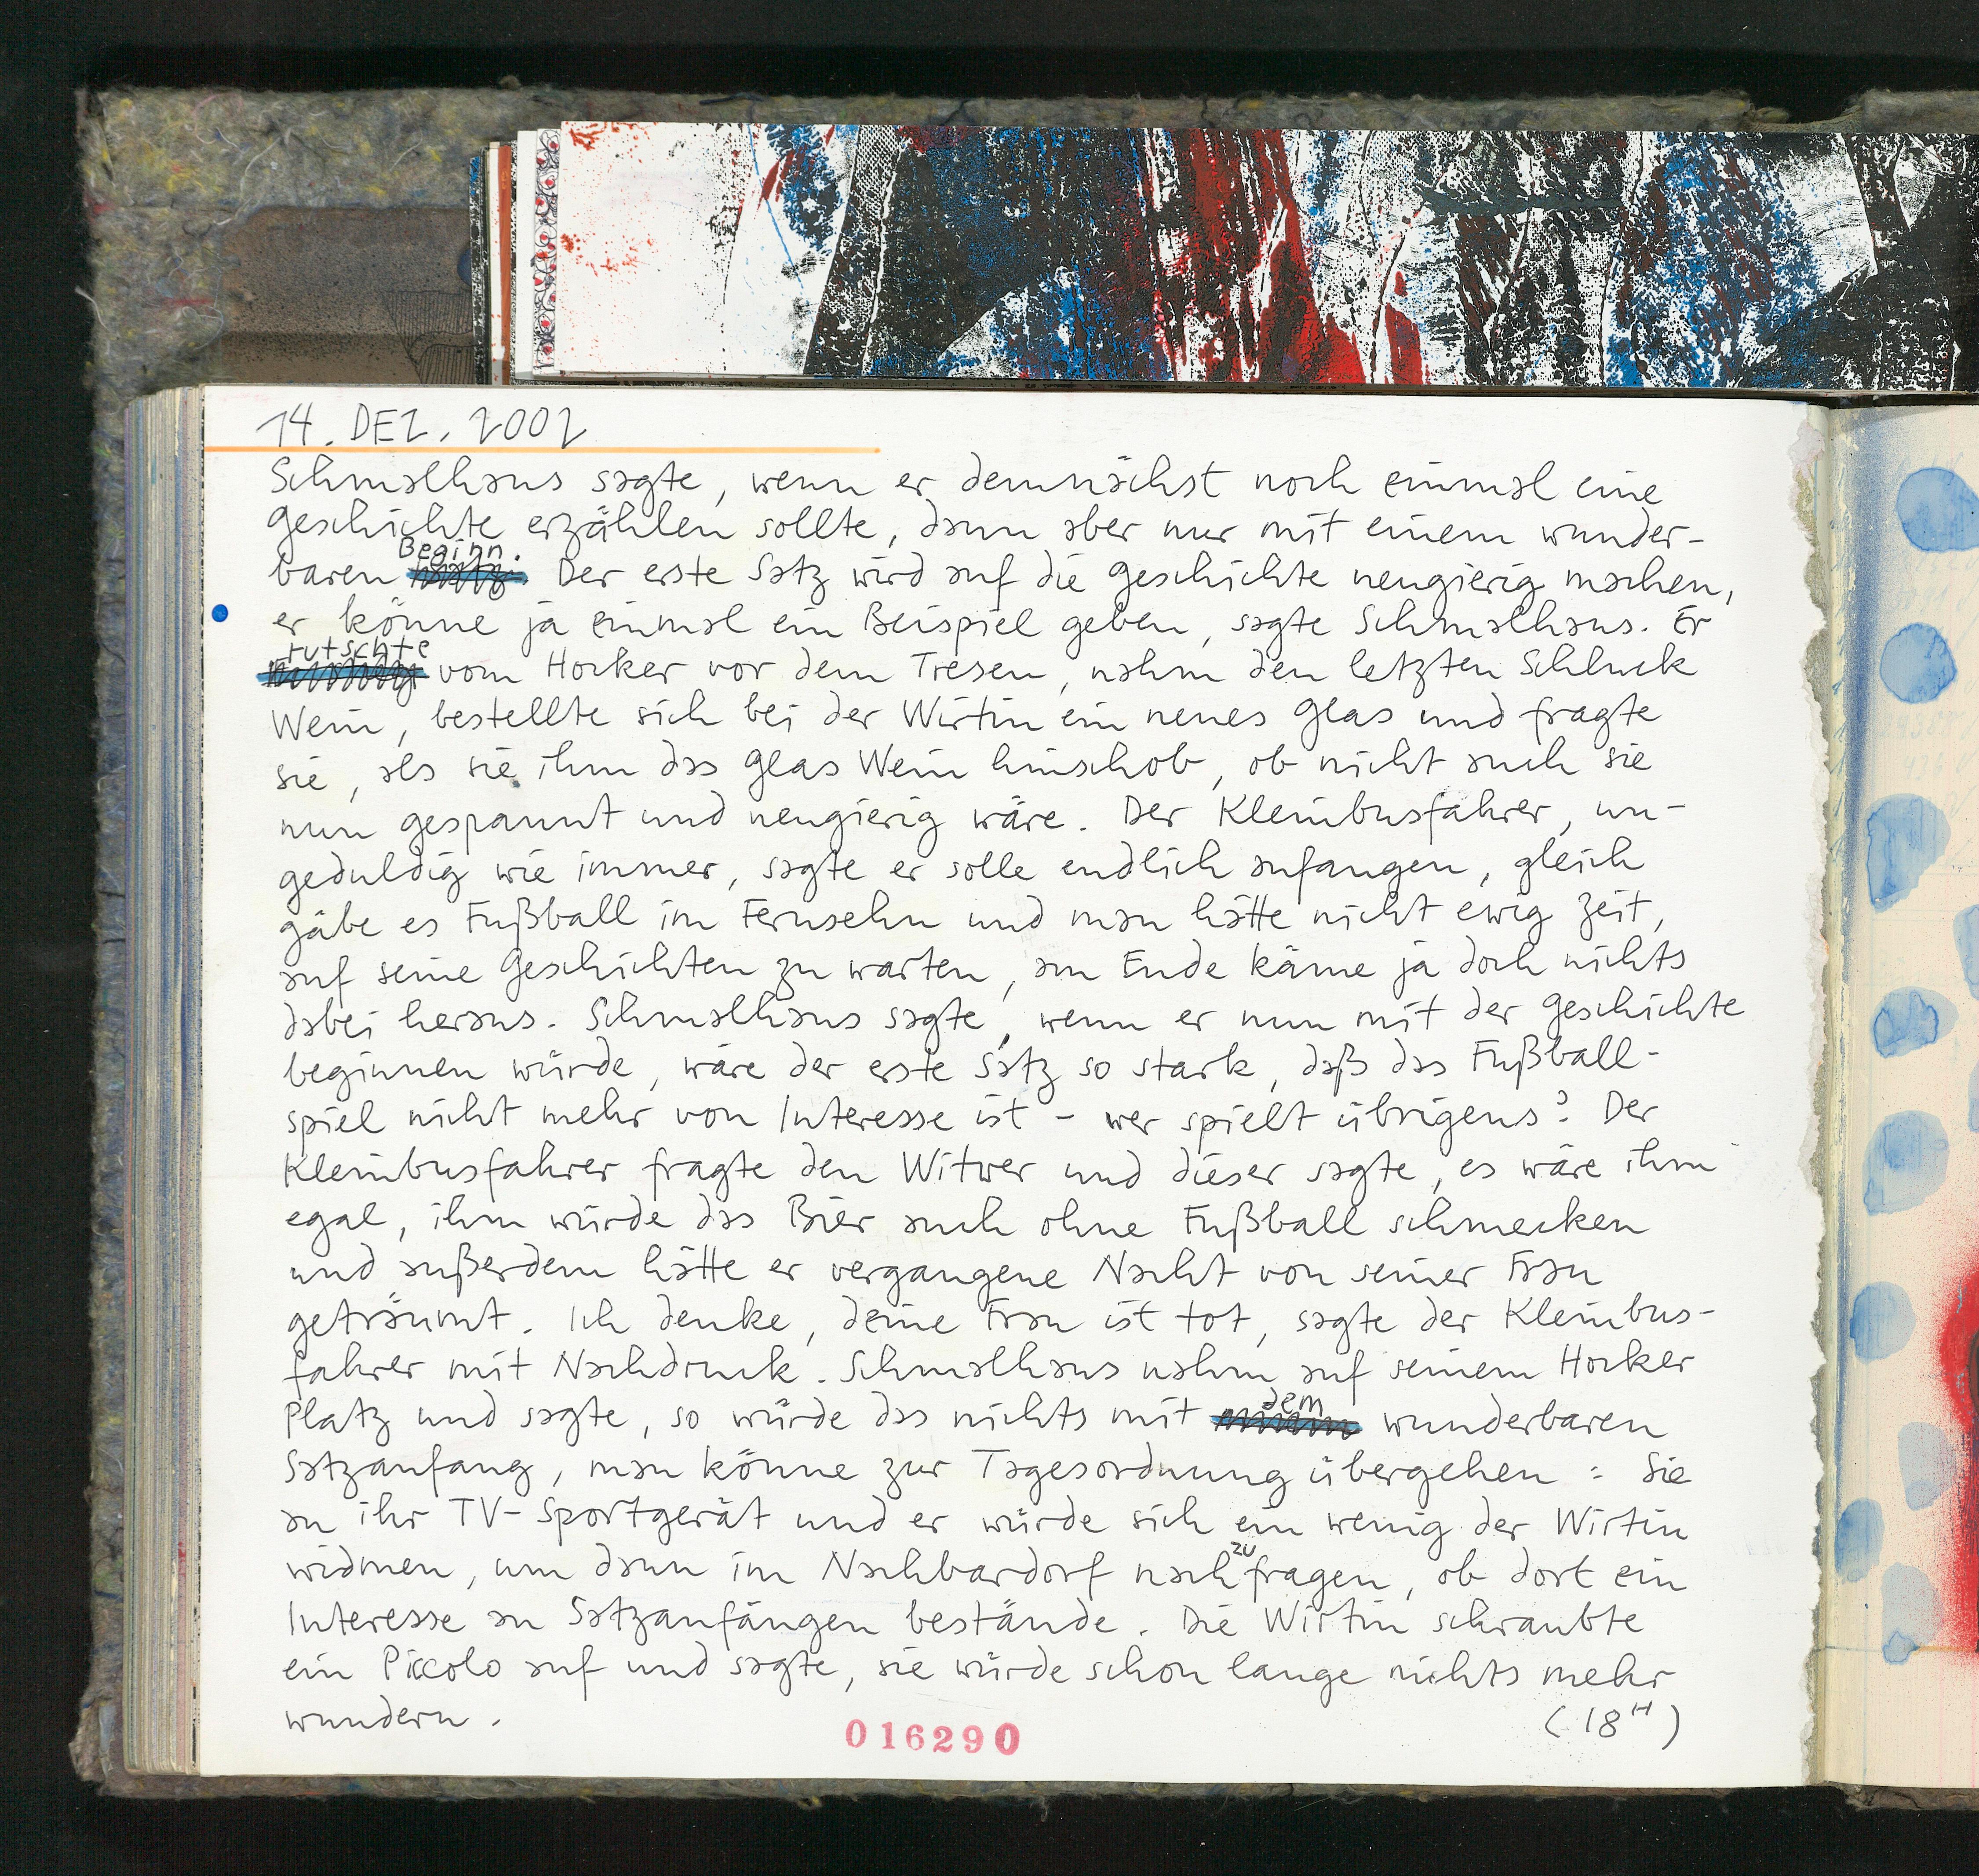 14. DEZ. 2002
Schmalhaus sagte, wenn er demnächst noch einmal eine
Geschichte erzählen sollte, dann aber nur mit einem wunder-
baren Beginn. Der erste Satz wird auf die Geschichte neugierig machen,
er könne ja einmal ein Beispiel geben, sagte Schmalhaus. Er
rutschte vom Hocker vor dem Tresen, nahm den letzten Schluck
Wein, bestellte sich bei der Wirtin ein neues Glas und fragte
sie, als sie ihm das Glas Wein hinschob, ob nicht auch sie
nun gespannt und neugierig wäre. Der Kleinbusfahrer, un-
geduldig wie immer, sagte er solle endlich anfangen, gleich
gäbe es Fußball im Fernsehn und man hätte nicht ewig Zeit,
auf seine Geschichten zu warten, am Ende käme ja doch nichts
dabei heraus. Schmalhaus sagte, wenn er nun mit der Geschichte
beginnen würde, wäre der erste Satz so stark, daß das Fußball-
spiel nicht mehr von Interesse ist - wer spielt übrigens? Der
Kleinbusfahrer fragte den Witwer und dieser sagte, es wäre ihm
egal, ihm würde das Bier auch ohne Fußball schmecken
und außerdem hätte er vergangene Nacht von seiner Frau
geträumt. Ich denke, deine Frau ist tot, sagte der Kleinbus-
fahrer mit Nachdruck. Schmalhaus nahm auf seinem Hocker
Platz und sagte, so würde das nichts mit dem wunderbaren
Satzanfang, man könne zur Tagesordnung übergehen: Sie
an ihr TV-Sportgerät und er würde sich ein wenig der Wirtin
widmen, um dann im Nachbardorf nachzufragen, ob dort ein
Interesse an Satzanfängen bestände. Die Wirtin schraubte
ein Piccolo auf und sagte, sie würde schon lange nichts mehr
wundern.
(18H)
016290